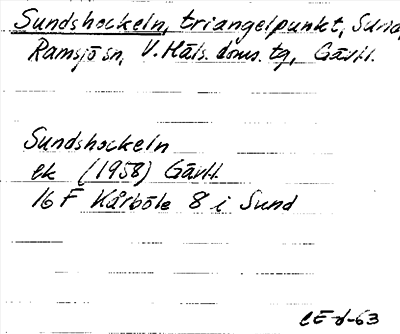 Sundshockeln, triangelpunkt, Sund,
Ramsjö sn, V. Häls. doms. tg, Gävll.
Sundshockeln
ek (1958) Gävll.
16 F Kårböle 8 i Sund
CE d-63